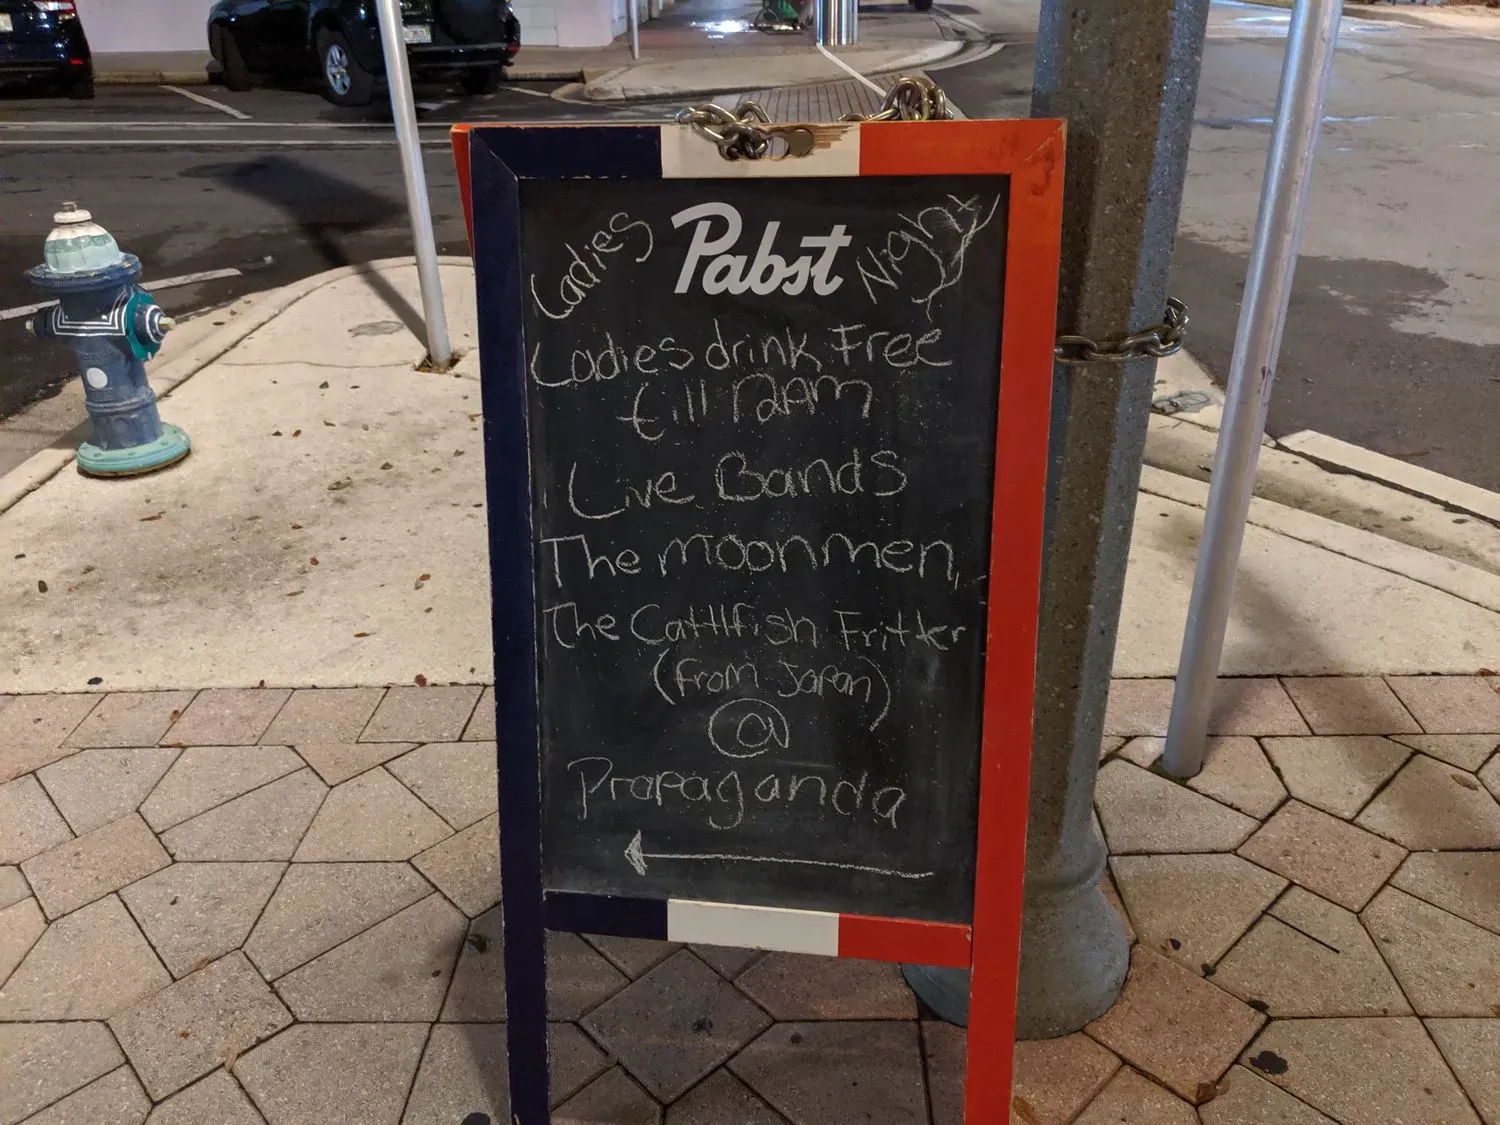 Ladies Pabst Night
Ladies drink Free
till 12am
Live Bands
The moonmen,
The Cattlfish Fritter
(From Japan)
@
Propaganda